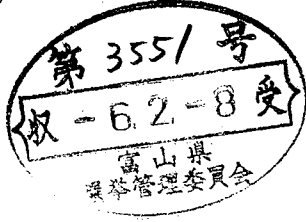 第 3551 号
収 -6.2.-8 受
富山県
選挙管理委員会